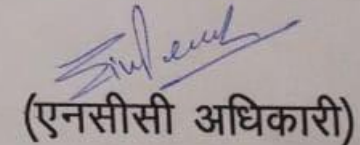 (एनसीसी अधिकारी)